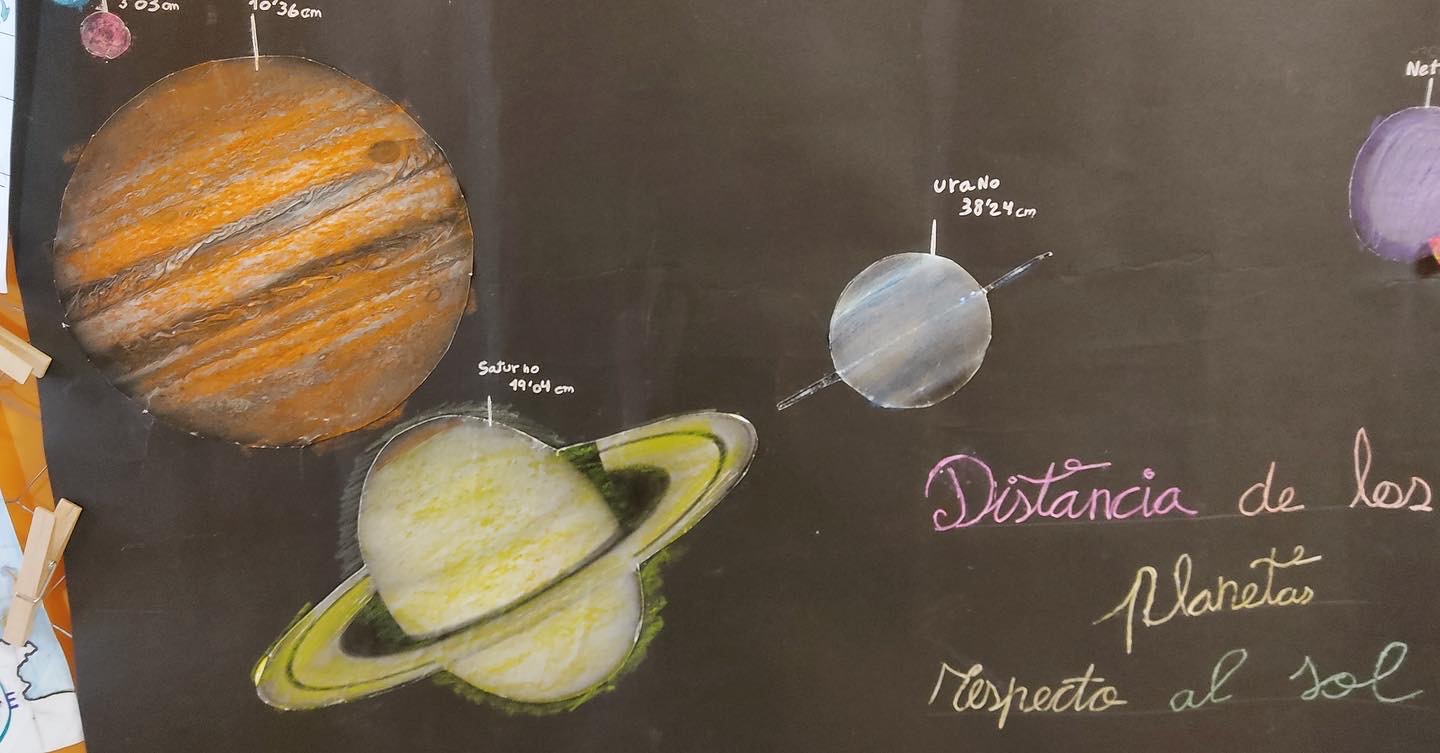 3'03cm
10'36cm
Saturno
19'04 cm
uraNo
38'24cm
Net
Distancia de los
planetas
respecto al sol
E